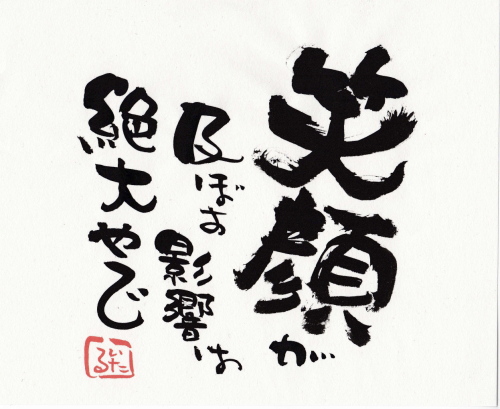 笑顔が
及ぼす影響は
絶大やで